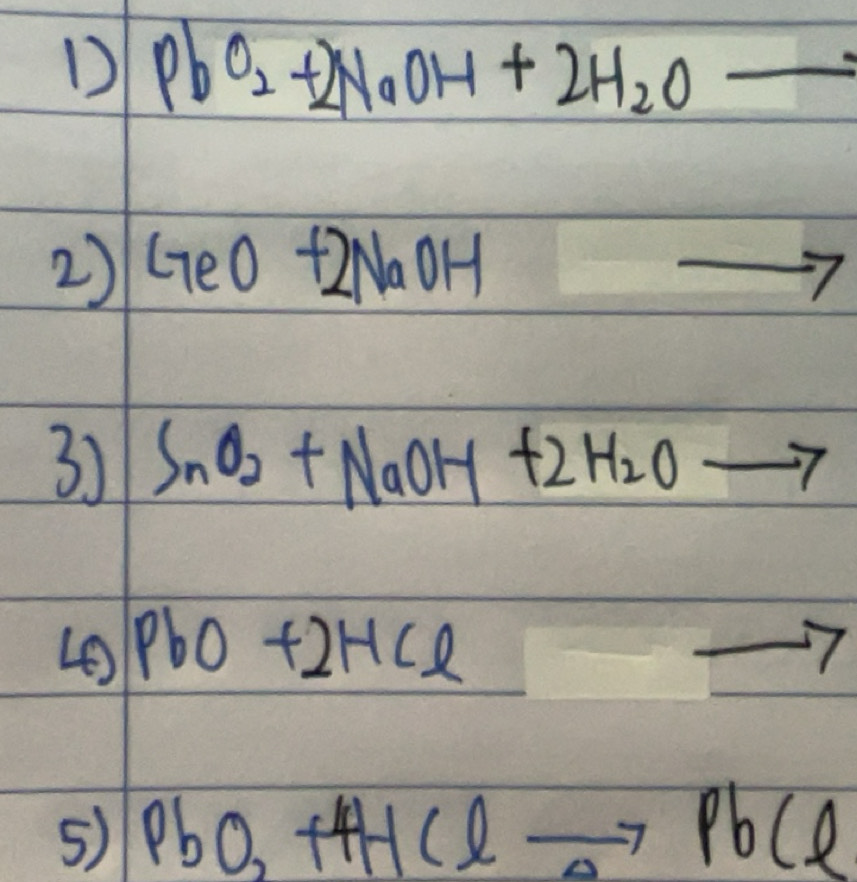 1) PbO₂ +2NaOH + 2H₂O →
2) GeO +2NaOH →
3) SnO₂ + NaOH +2H₂O →
4) PbO +2HCl →
5) PbO₂ +4HCl →△ PbCl